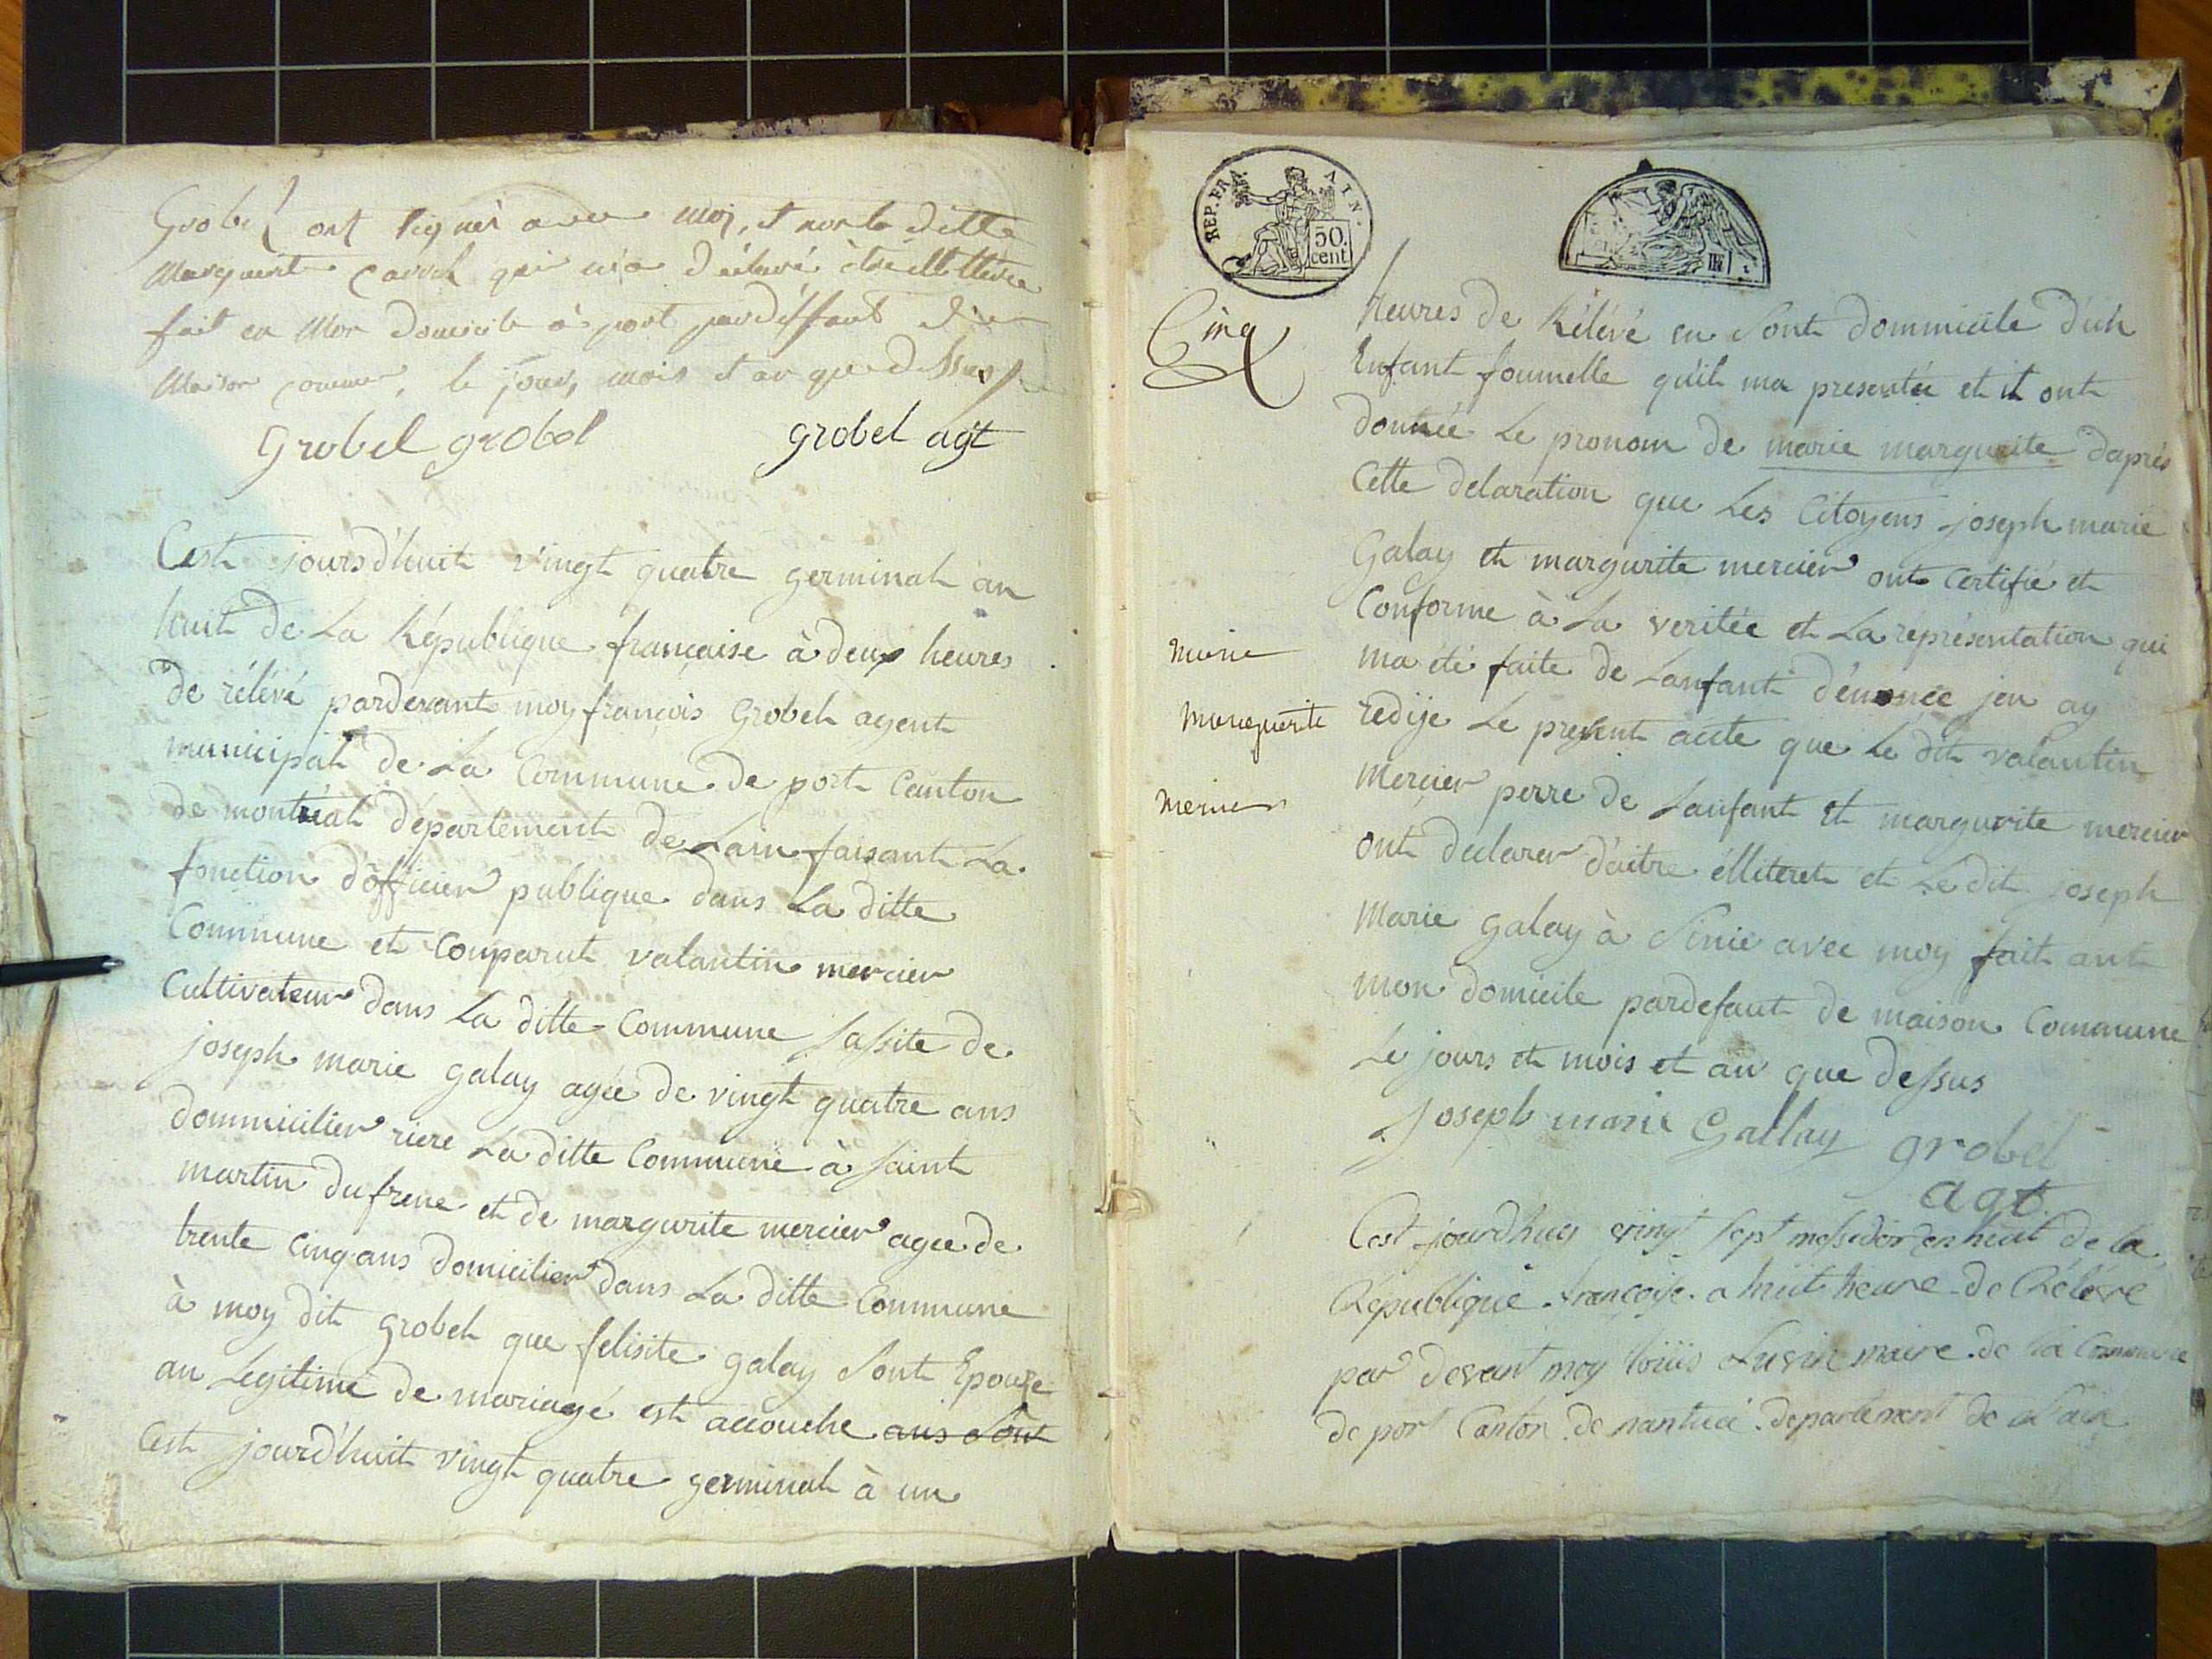 Grobel ont signés avec moi, et non la ditte
Marguerite qui m'a déclaré être illettrée
fait en mon domicile à port par deffaut d'une
Maison commune, le jour, mois et an que dessus
Grobel grobel grobel agt
Cest jours d'huit vingt quatre germinal an
huit de La République française à deux heures
de rélévé pardevant moy françois Grobel agent
municipal de La Commune de port Canton
de montréal département de Lain faisant La
fonction d'officier publique dans La ditte
Commune et Comparut valantin mercier
Cultivateur dans La ditte CommuneAssite de
joseph marie galay agée de vingt quatre ans
dommicilier riere La ditte Commune à saint
martin dufrene et de margurite mercier agée de
trente cinq ans domicilier dans La ditte Commune
à moy dit Grobel que felisite galay Sont Epouze
an Legitime de mariage est accouche
Cest jourd'huit vingt quatre germinal à un
REP. FRA. AIN.
50. cent
Cinq
heures de Rélévé en Sont dommicile d'uh
Enfant foumelle quil ma presentée et it ont
donnée Le pronom de marie margurite daprès
Cette delaration que Les Citoyens joseph marie
Galay et margurite mercier ont Certifié et
Conforme à La veritée et La représentation qui
Marie
ma été faite de Lanfant dénonée jen ay
Marguerite
redije Le present acte que Le dit valantin
Mercier
Mercier perre de Lanfant Et margurite mercier
ont declarer d'aitre élliteret et Le dit joseph
Marie galay à Sinie avec moy fait ant
mon domicile pardefaut de maison Commune
Le jours et mois et an que dessus
Joseph marie Gallay grobel
agt.
Cest jourdhuy vingt sept messidor an huit de la
République francoise a huit heure de Rélévé
par devant moy louis maire de la Commune
de port Canton de nantua departement de Lain